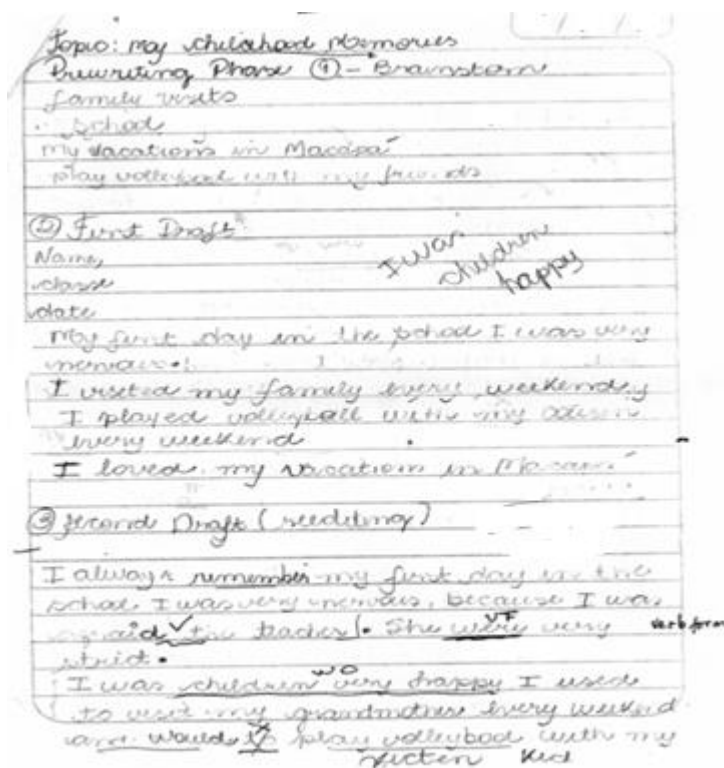 Topic: My childhood Memories
Prewriting Phase ① - Brainstorm
family visits
. school
My vacations in Macapá
play volleyball with my friends
② First Draft
I was
children
happy
Name,
classe
date
My first day in the school I was very
nervous.
I visited my family every weekend
I played volleyball with my
every weekend
I loved my vacation in Macapá
③ Second Draft (reediting)
I always remember my first day in the
school I was very nervous, because I was
afraid the teacher. She were very
VF
verb form
strict.
WO
I was children very happy I used
to visit my grandmother every weekend
and would to play volleyball with my
kid